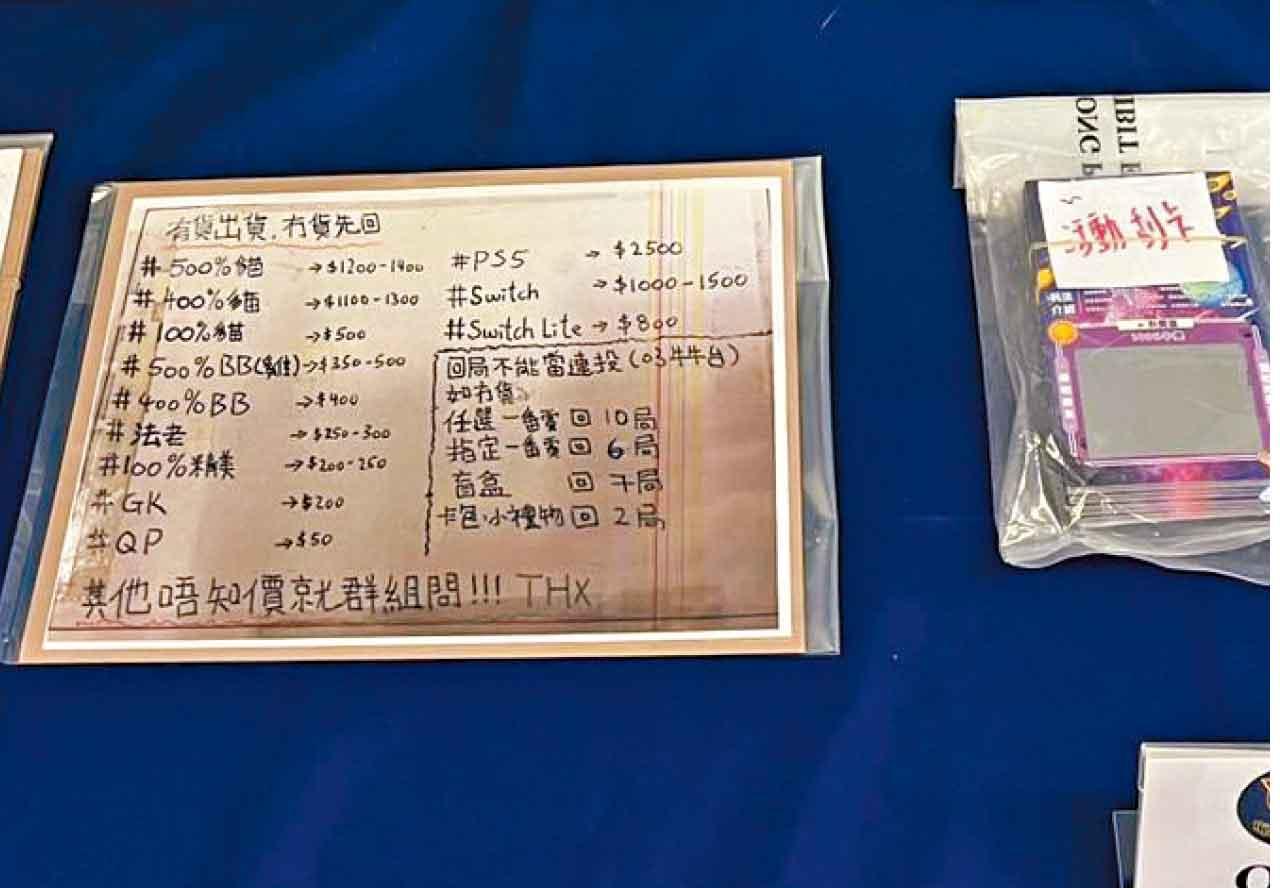 有貨出貨,冇貨先回
#500%貓 →$1200-1400
#400%貓 →$1100-1300
#100%貓 →$500
#500%BB →$350-500
#400%BB →$400
#法老 →$250-300
#100%精美 →$200-250
#GK →$200
#QP →$50
#PS5 → $2500
#Switch →$1000-1500
#Switch Lite → $800
回局不能當連投(03牛牛台)
如冇貨:
任選一番賞 回 10局
指定一番賞 回 6局
盲盒 回 局
卡包小禮物 回 2局
其他唔知價就群組問!!! THX
IBIT E
ONG P
活動刮卡
介紹